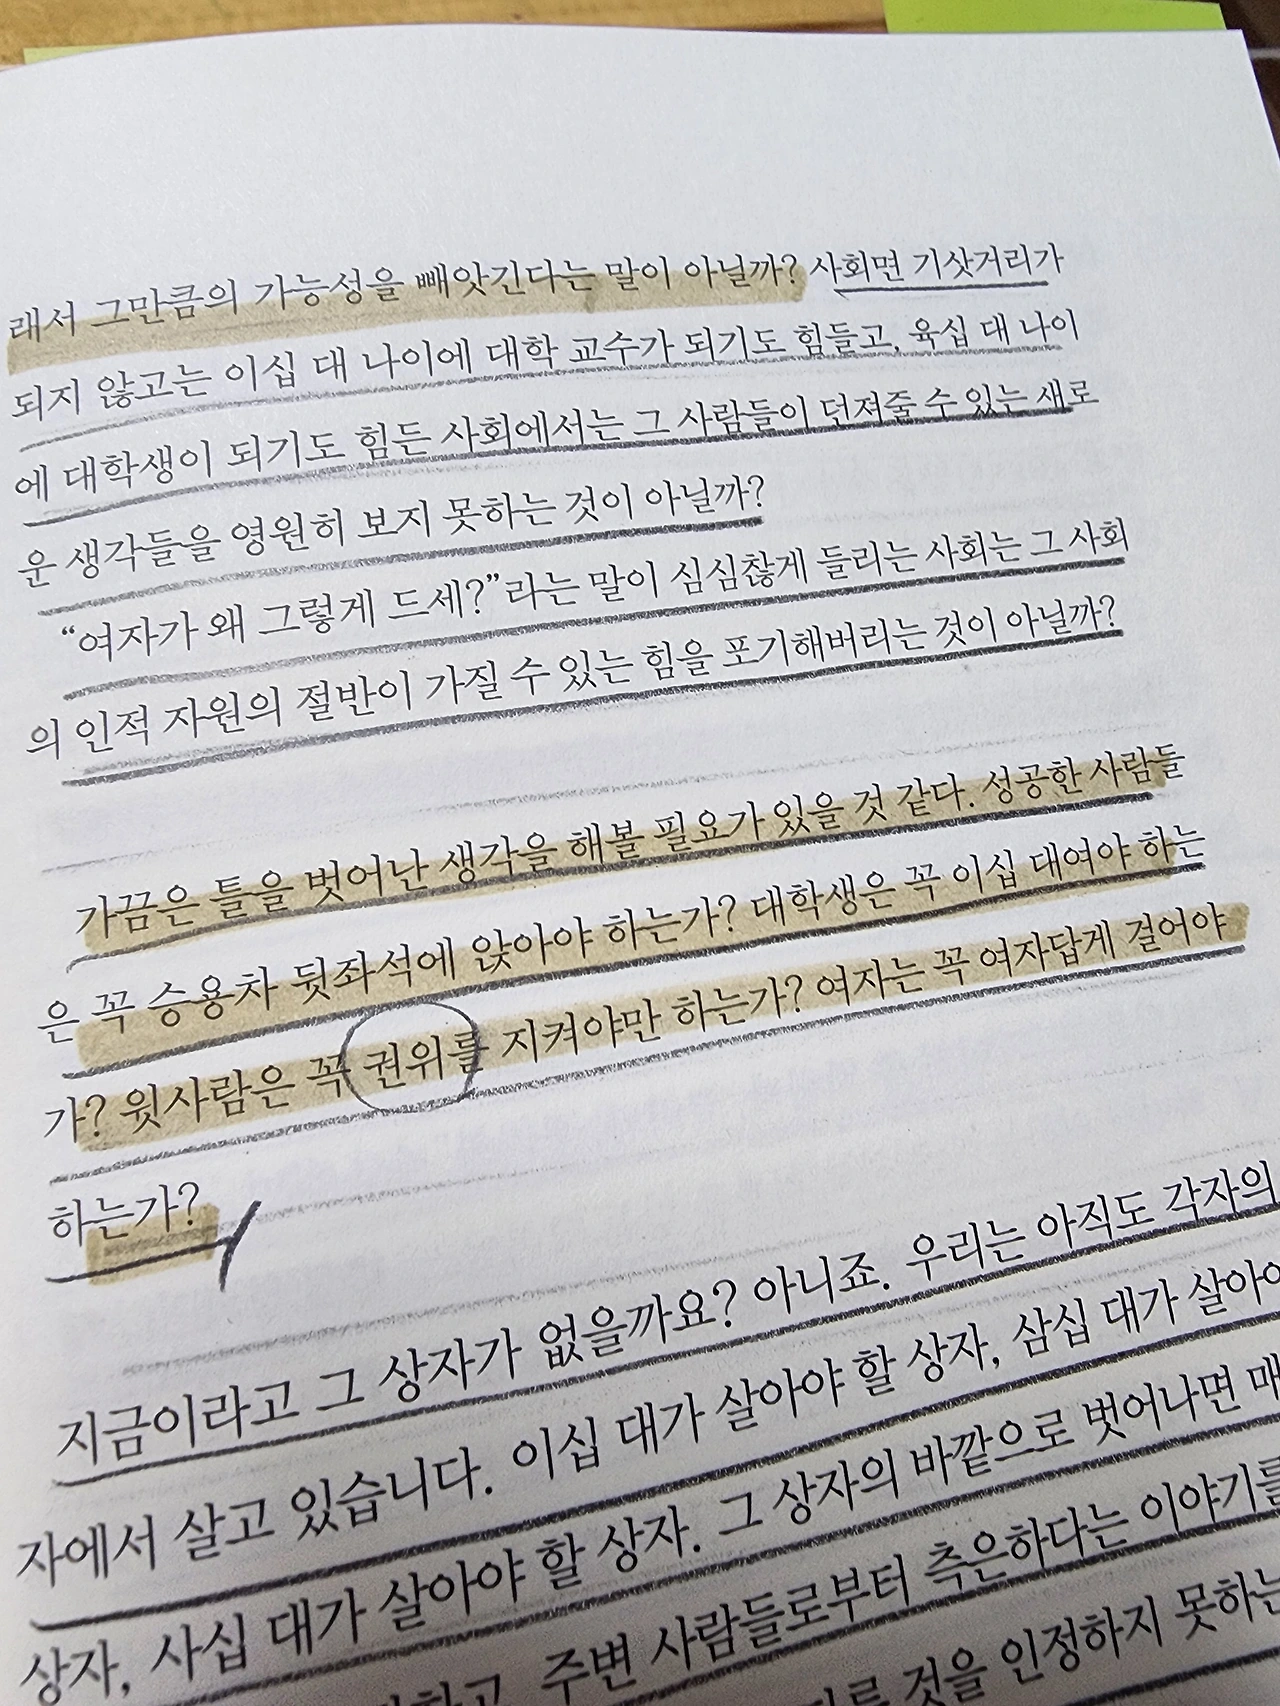 래서 그만큼의 가능성을 빼앗긴다는 말이 아닐까? 사회면 기삿거리가
되지 않고는 이십 대 나이에 대학 교수가 되기도 힘들고, 육십 대 나이
에 대학생이 되기도 힘든 사회에서는 그 사람들이 던져줄 수 있는 새로
운 생각들을 영원히 보지 못하는 것이 아닐까?
“여자가 왜 그렇게 드세?”라는 말이 심심찮게 들리는 사회는 그 사회
의 인적 자원의 절반이 가질 수 있는 힘을 포기해버리는 것이 아닐까?
가끔은 틀을 벗어난 생각을 해볼 필요가 있을 것 같다. 성공한 사람들
은 꼭 승용차 뒷좌석에 앉아야 하는가? 대학생은 꼭 이십 대여야 하는
가? 윗사람은 꼭 권위를 지켜야만 하는가? 여자는 꼭 여자답게 걸어야
하는가?
지금이라고 그 상자가 없을까요? 아니죠. 우리는 아직도 각자의
자에서 살고 있습니다. 이십 대가 살아야 할 상자, 삼십 대가 살아야
상자, 사십 대가 살아야 할 상자. 그 상자의 바깥으로 벗어나면
주변 사람들로부터 측은하다는 이야기를
것을 인정하지 못하는